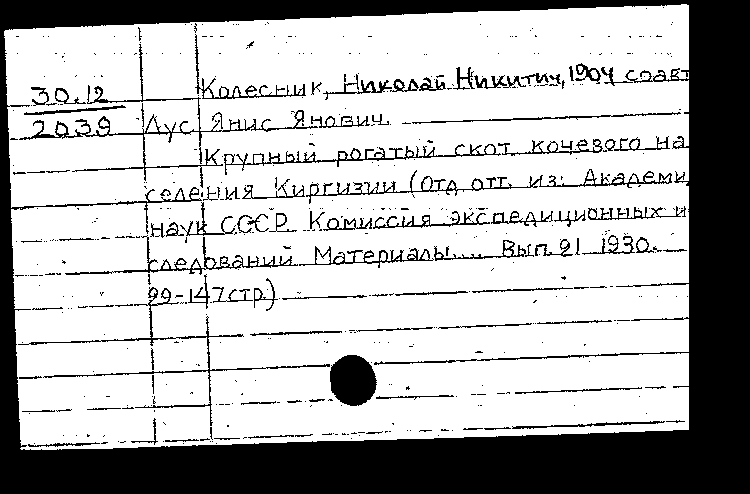 30.12
2039
Колесник, Николай Никитич, 1904 соавт
Лус Янис Янович.
Крупный рогатый скот кочевого на
селения Киргизии (Отд. отт. из: Академи
наук СССР. Комиссия экспедиционных и
следований Материалы... Вып. 21 1930.
99-147 стр.)